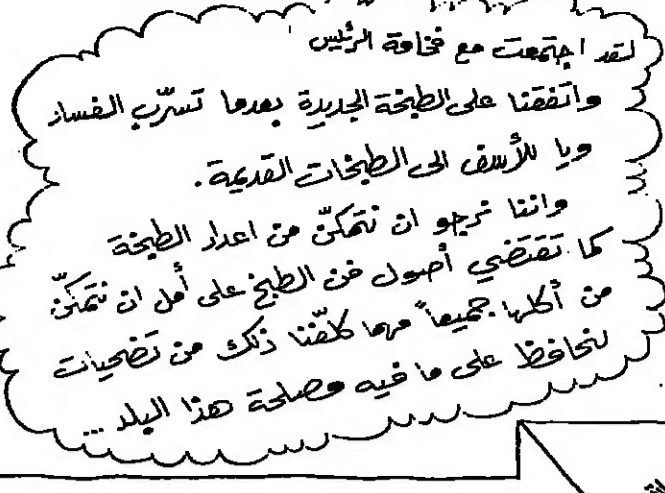 لقد اجتمعت مع فخامة الرئيس
واتفقنا على الطبخة الجديدة بعدما تسرّب الفساد
ويا للأسف الى الطبخات القديمة.
واننا نرجو ان نتمكّن من اعداد الطبخة
كما تقتضي أصول فن الطبخ على أمل ان نتمكّن
من أكلها جميعاً مهما كلّفنا ذلك من تضحيات
لنحافظ على ما فيه مصلحة هذا البلد ...